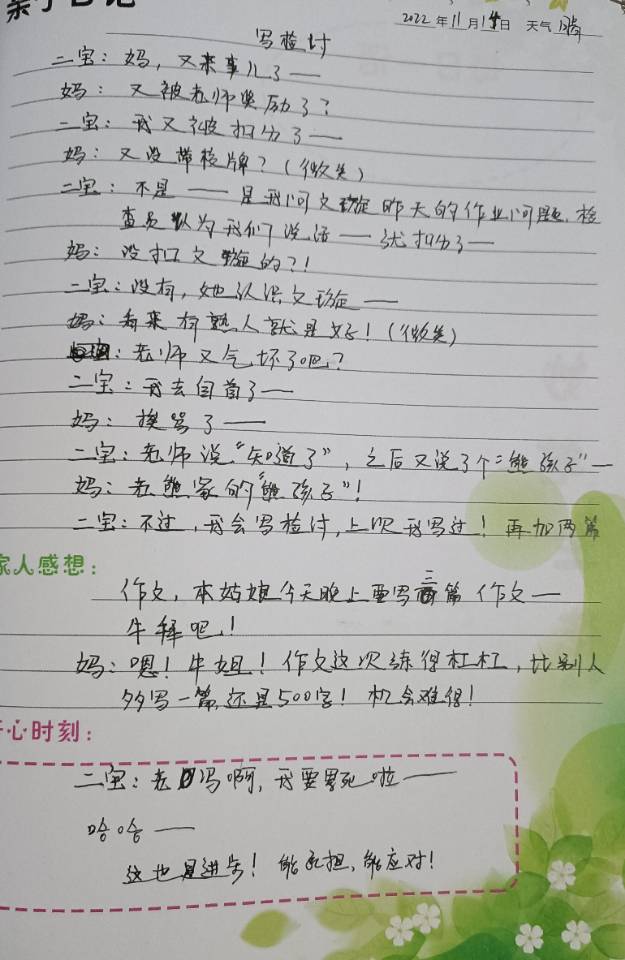 亲子日记
2022年11月14日 天气 晴
写检讨
二宝：妈，又来事儿了——
妈：又被老师奖励了？
二宝：我又被扣分了——
妈：又没带校牌？（微笑）
二宝：不是——是我问文璇昨天的作业问题，检
查员认为我们说话——就扣分了——
妈：没扣文璇的？！
二宝：没有，她认识文璇——
妈：看来有熟人就是好！（微笑）
：老师又气坏了吧？
二宝：我去自首了——
妈：挨骂了——
二宝：老师说“知道了”，之后又说了个“熊孩子”—
妈：老熊家的“熊孩子”！
二宝：不过，我会写检讨，上次我写过！再加两篇
家人感想：
作文，本姑娘今天晚上要写三篇作文—
牛掰吧！
妈：嗯！牛姐！作文这次练得杠杠，比别人
多写一篇，还是500字！机会难得！
开心时刻：
二宝：老妈啊，我要累死啦——
哈哈——
这也是进步！能承担，能应对！